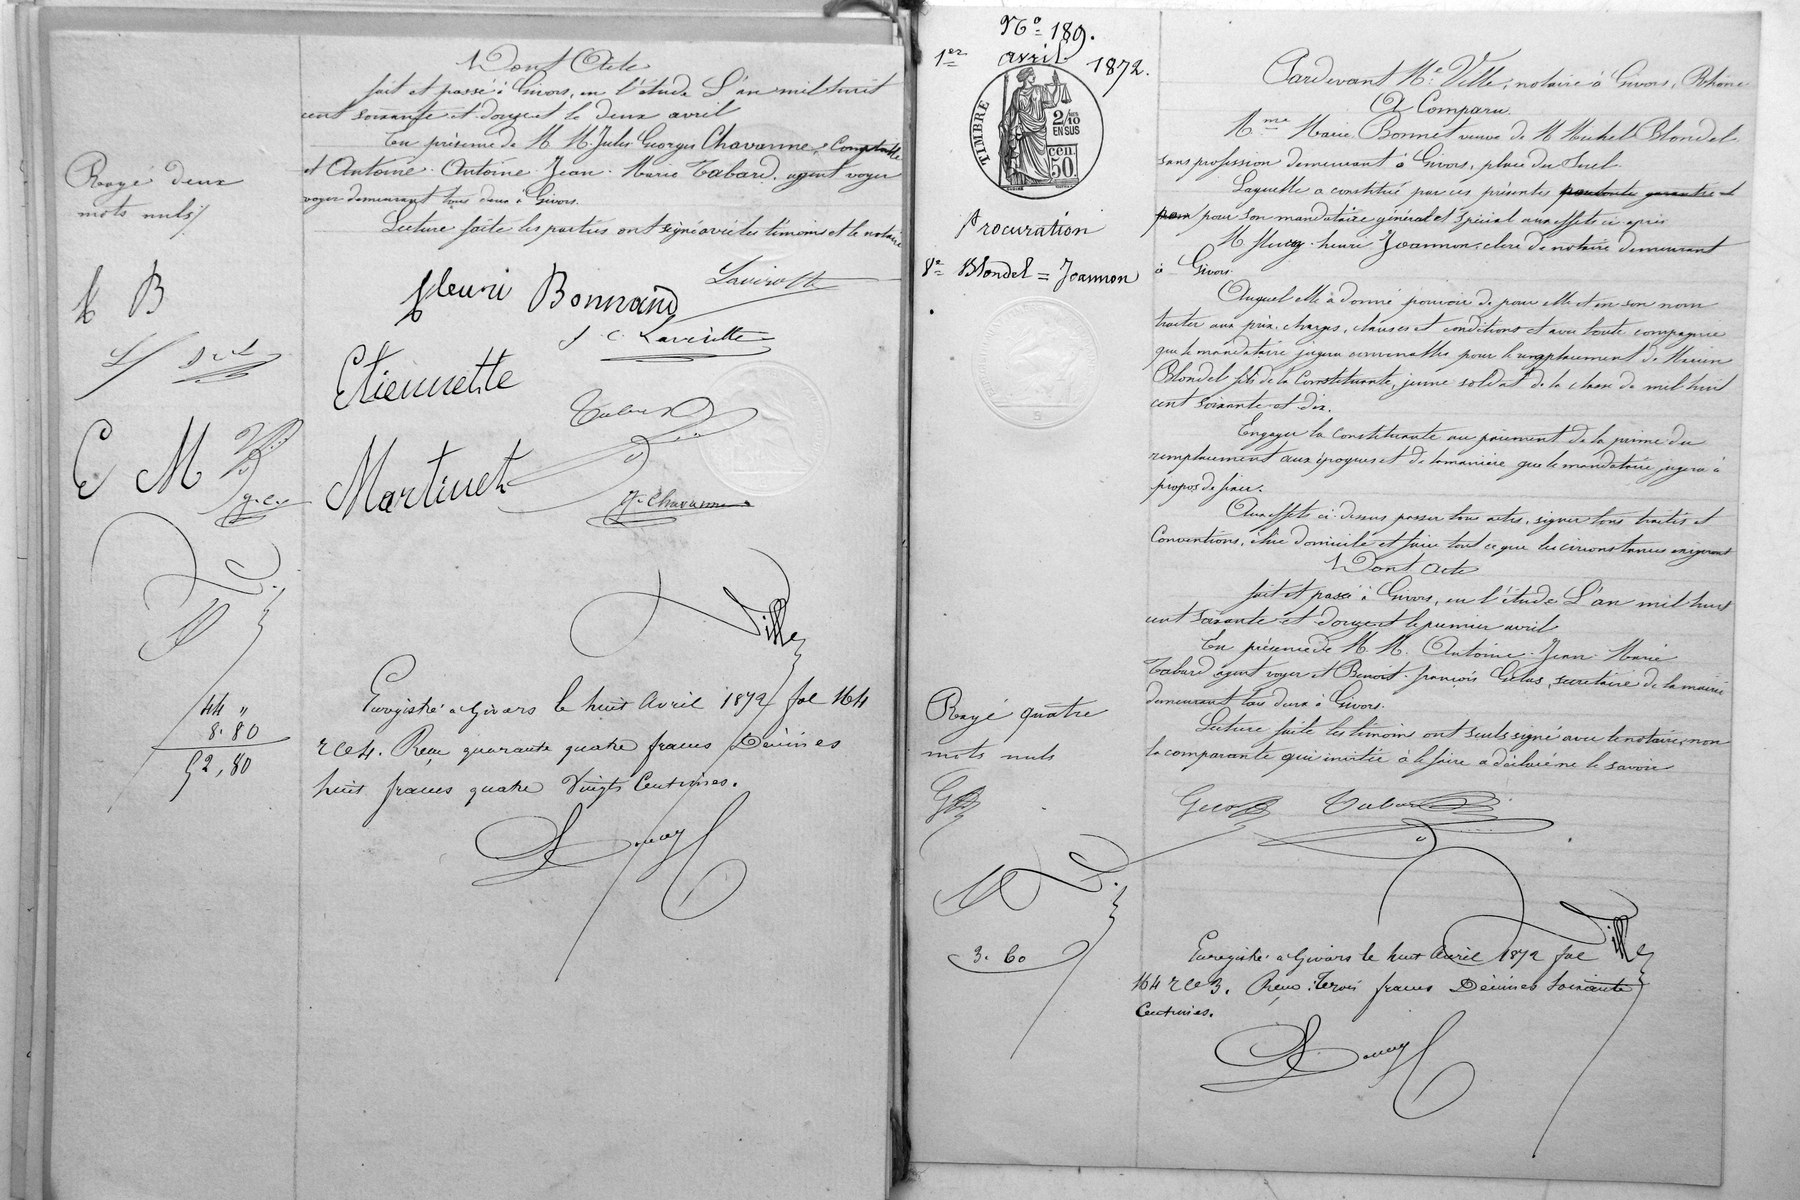 Dont Acte
fait et passé à Givors, en l'étude L'an mil huit
cent soixante et douze et le deux avril
En présence de M. M. Jules Georges Chavanne, Comptable
et Antoine Antoine Jean Marie Tabard, agent voyer
voyer demeurant tous deux à Givors.
Lecture faite les parties ont signé avec les témoins et le notaire
Rayé deux
mots nuls
f B
fleuri Bonnand
Lavirotte
J. C. Lavirotte
Etiennette
Tabard
E M
Martinet
J. Chavanne
Ville
44 "
8.80
52,80
Enregistré à Givors le huit Avril 1872 fol 164
r c 4. Reçu quarante quatre francs Décimes
huit francs quatre Vingts Centimes.
No 189.
1er avril 1872.
TIMBRE
2/10
EN SUS
50 cen.
Procuration
Ve Blondel = Joannon
Pardevant Me Ville, notaire à Givors, Rhône
A Comparu
Mme Marie Bonnet veuve de M Michel Blondel
sans profession demeurant à Givors, place du Suel
Laquelle a constitué par ces présentes
pour pour son mandataire général et spécial aux effets ci après
M fleury henri Joannon, clerc de notaire demeurant
à Givors.
Auquel elle a donné pouvoir de pour elle et en son nom
traiter aux prix, charges, clauses et conditions et avec toute compagnie
que le mandataire jugera convenable pour le remplacement de
Blondel fils de la Constituante, jeune soldat de la classe de mil huit
cent soixante et dix.
Engager la constituante au paiement de la prime du
remplacement aux époques et de la manière que le mandataire jugera à
propos de fixer.
Aux effets ci-dessus passer tous actes, signer tous traités et
Conventions, élire domicile et faire tout ce que les circonstances exigeront
Dont acte
fait et passé à Givors, en l'étude L'an mil huit
cent soixante et douze et le premier avril
En présence de M. M. Antoine Jean Marie
Tabard agent voyer et Benoit françois Gelas, secrétaire de la mairie
demeurant tous deux à Givors.
Lecture faite les témoins ont seuls signé avec le notaire, non
la comparante qui invitée à le faire a déclaré ne le savoir
Rayé quatre
mots nuls
Tabard
Ville
3.60
Enregistré à Givors le huit Avril 1872 fol
164 r c 3. Reçu Trois francs Décimes Soixante
Centimes.